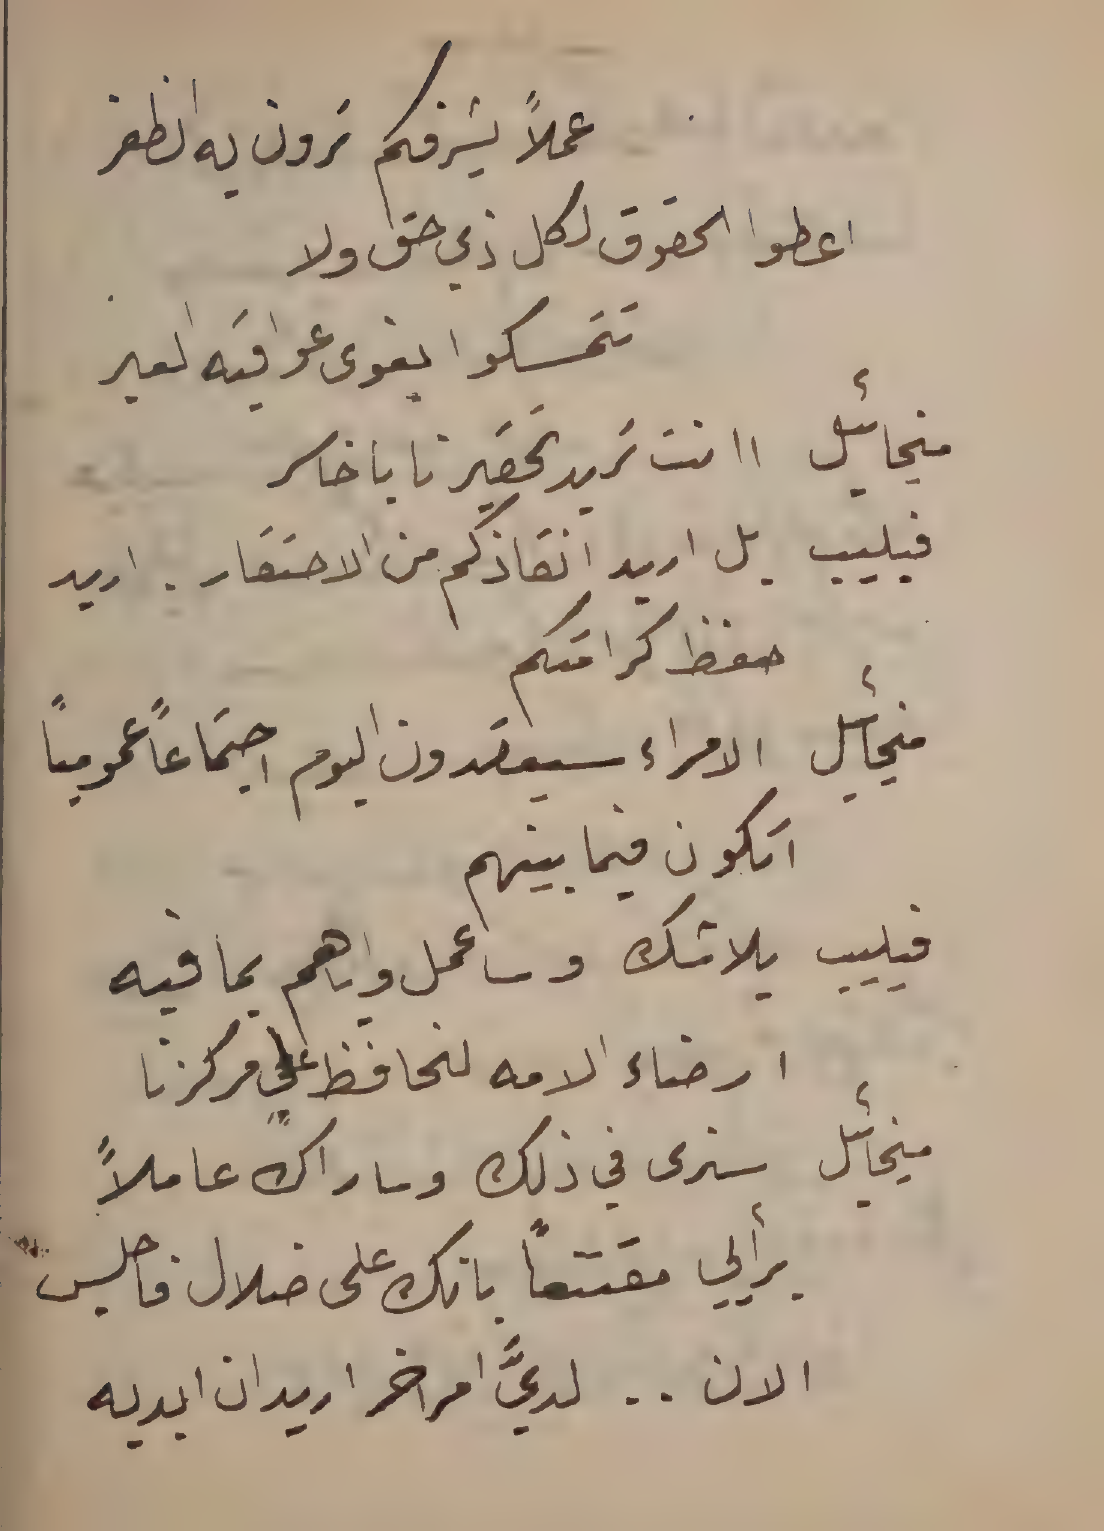 عملاً يشرفكم ترون به الظفر
اعطوا الحقوق لكل ذي حق ولا
تتمسكوا بقوى عواقبه العبر
ميخائيل اانت تريد تحقيرنا يا خاسر
فيليب بل اريد انقاذكم من الاحتقار . اريد
حفظ كرامتكم
ميخائيل الامراء سيعقدون اليوم اجتماعاً عمومياً
اتكون فيما بينهم
فيليب بلا شك وساعمل واياهم بما فيه
ارضاء الامه لنحافظ على مركزنا
ميخائيل سنرى في ذلك وساراك عاملاً
برأيي مقتنعاً بانك على ضلال فاجلس
الان . . لديَّ امر اخر اريد ان ابديه